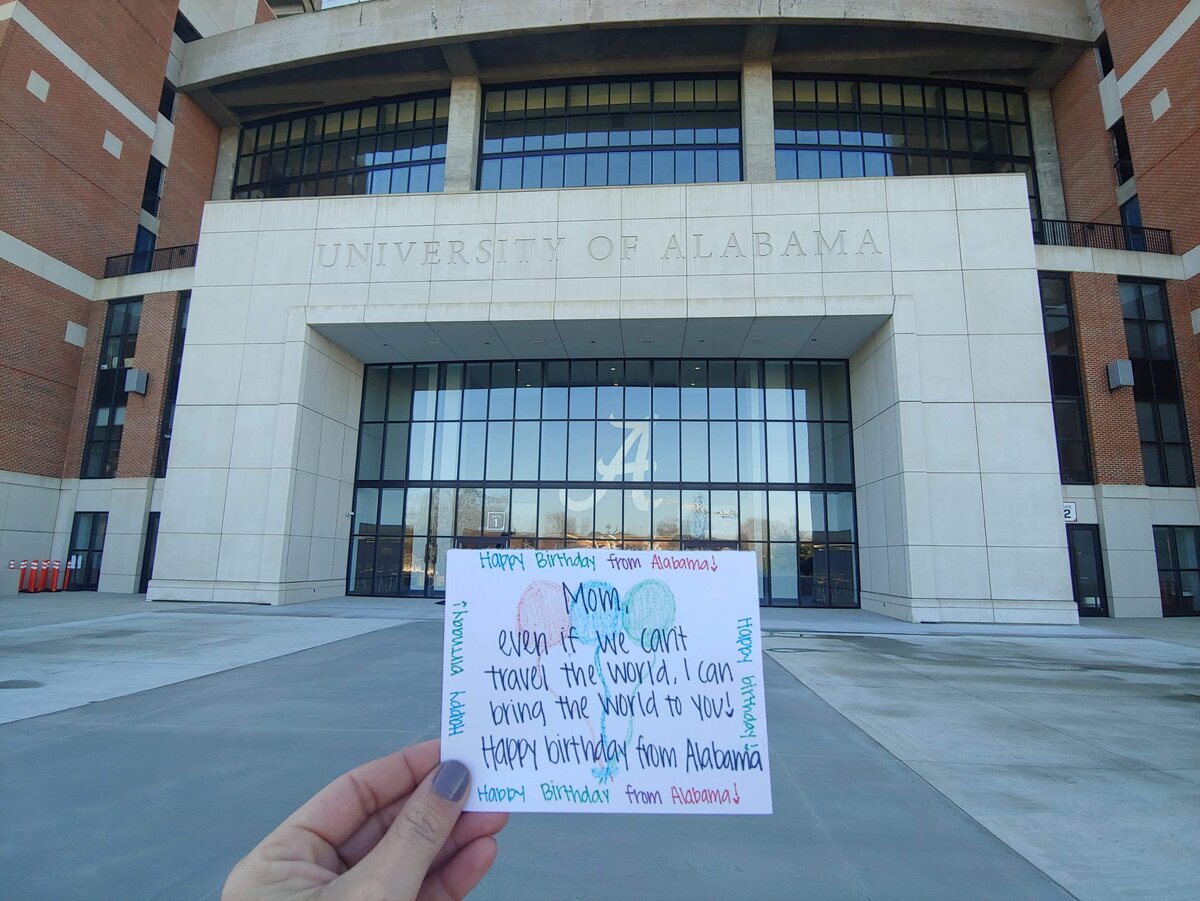 UNIVERSITY OF ALABAMA
A
GATE
1
2
Happy Birthday from Alabama!
Mom,
even if we can't
travel the world, I can
bring the world to you!
Happy birthday from Alabama
Happy Birthday from Alabama!
Happy birthday!
Happy birthday!